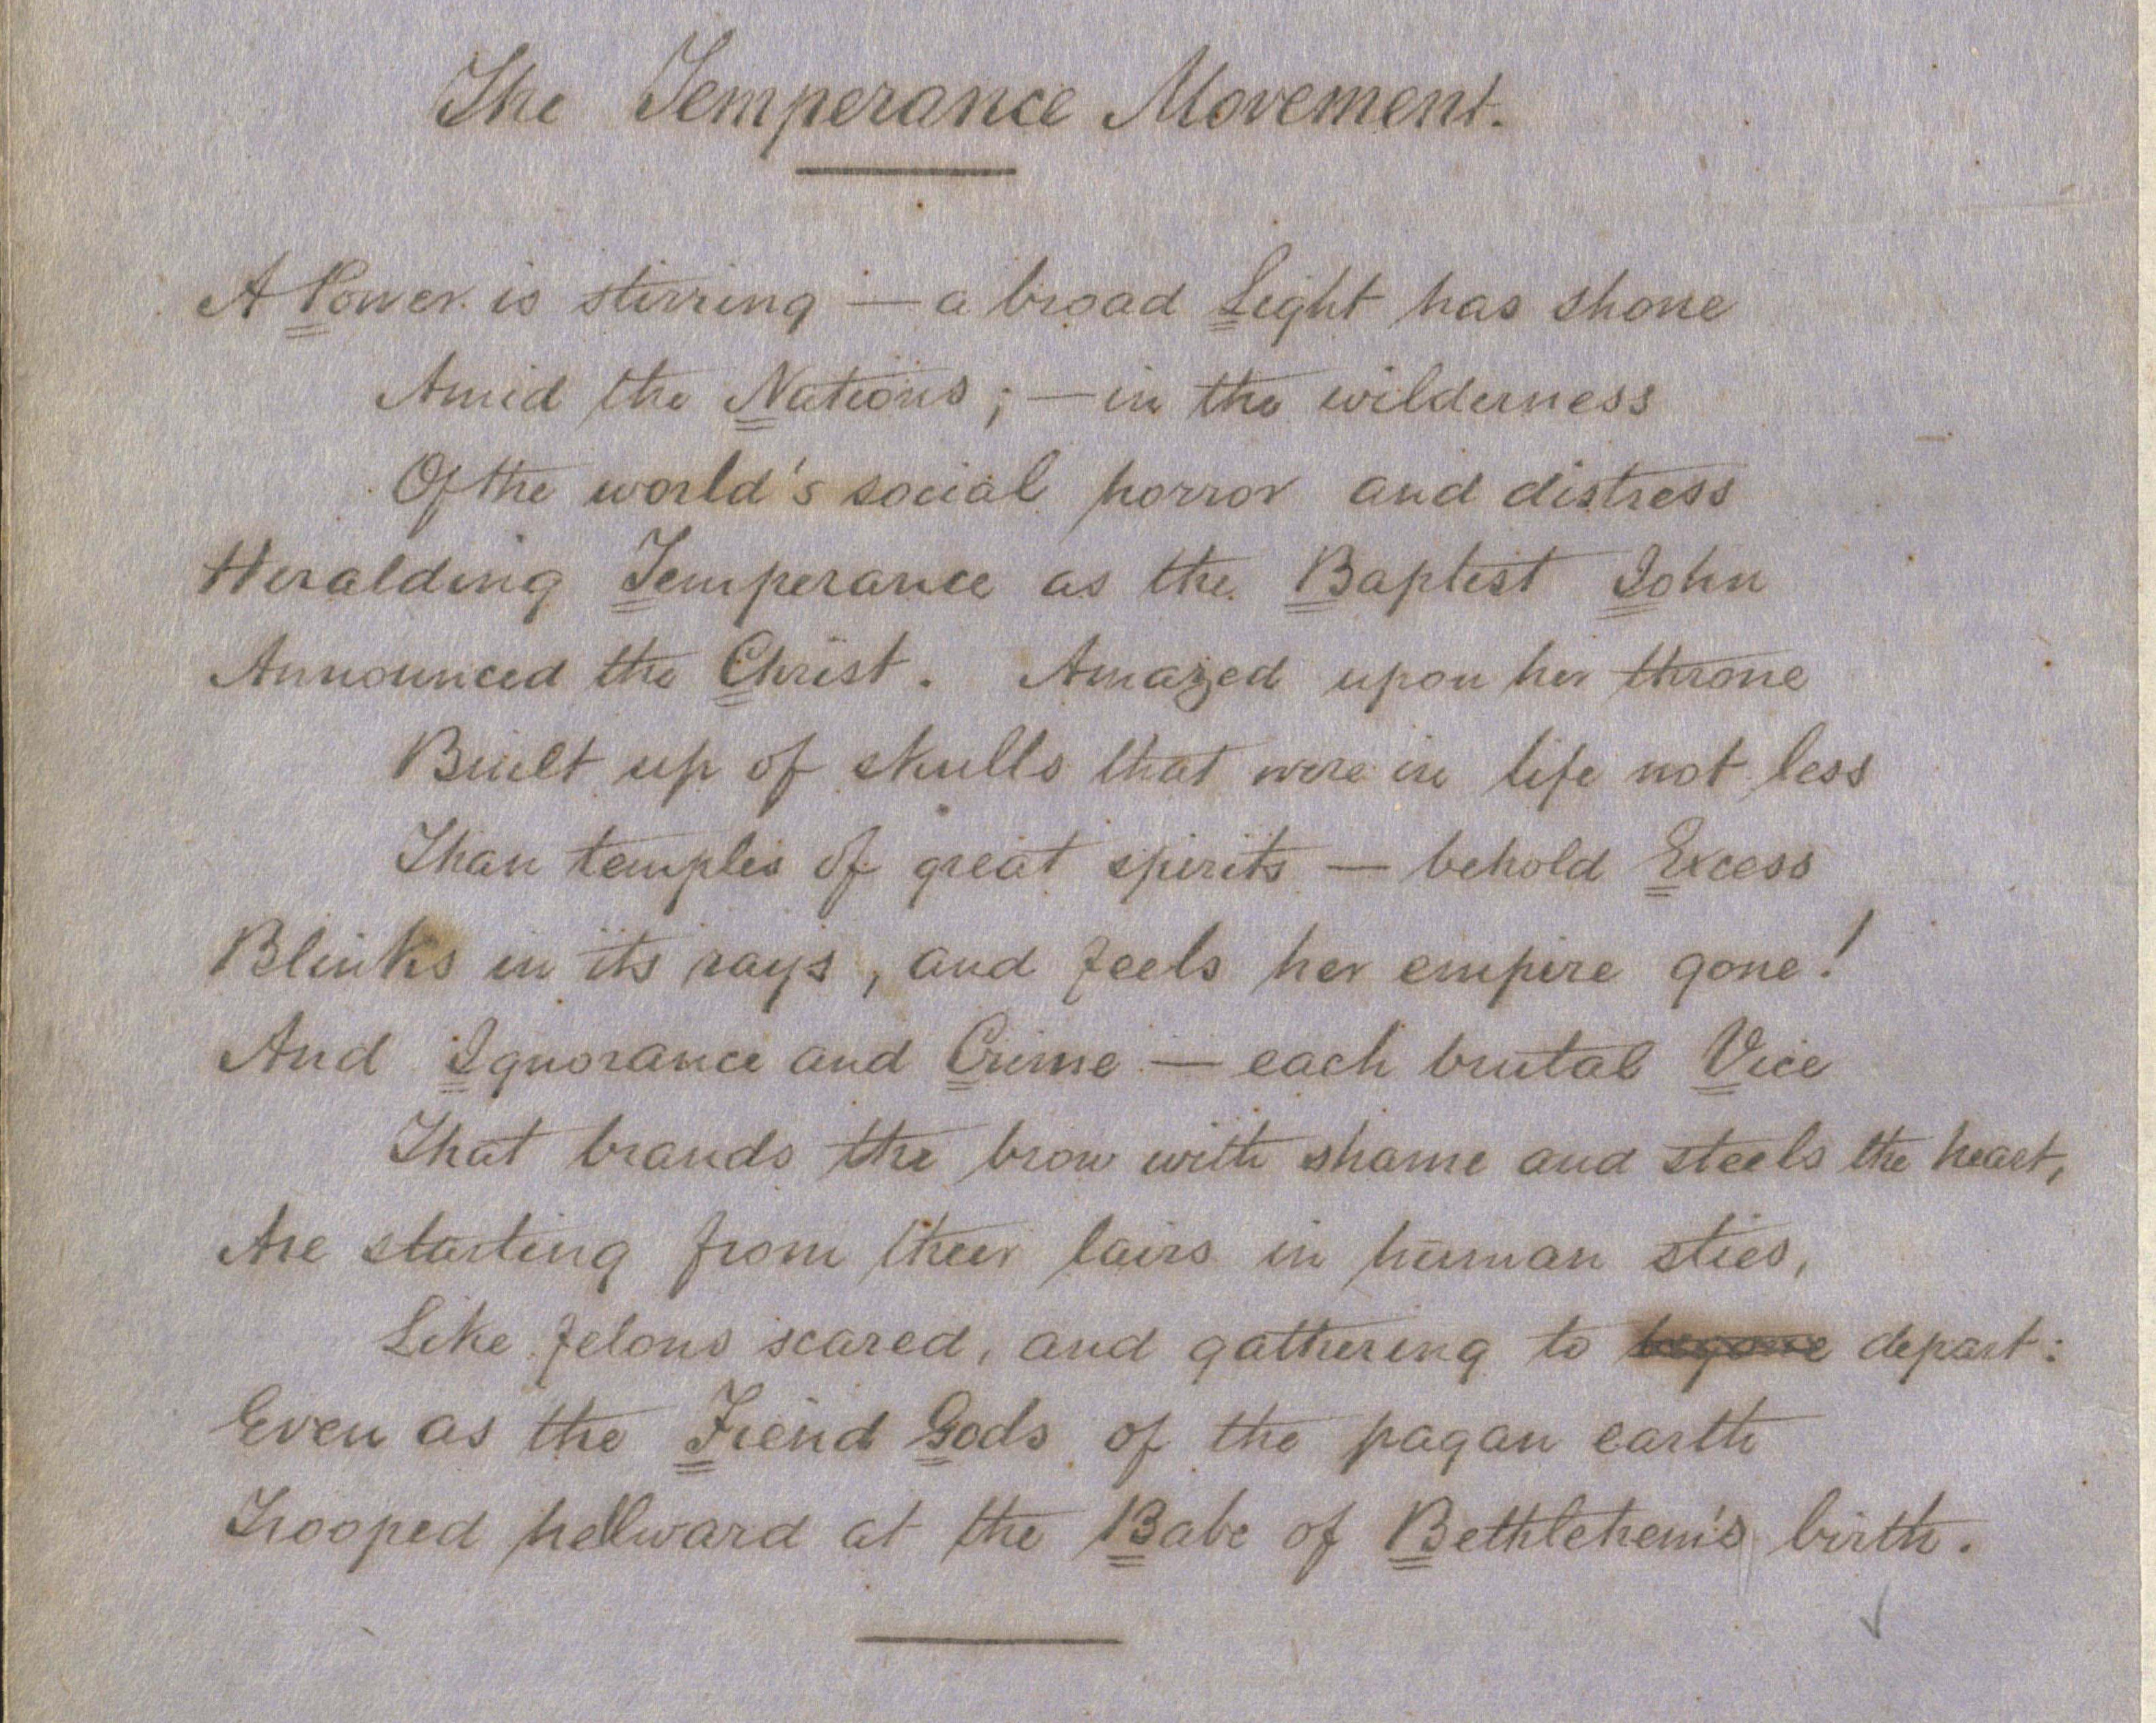 The Temperance Movement.
A Power is stirring — a broad Light has shone
Amid the Nations; — in the wilderness
Of the world's social horror and distress
Heralding Temperance as the Baptist John
Announced the Christ. Amazed upon her throne
Built up of skulls that were in life not less
Than temples of great spirits — behold Excess
Blinks in its rays, and feels her empire gone!
And Ignorance and Crime — each brutal Vice
That brands the brow with shame and steels the heart,
Are starting from their lairs in human sties,
Like felons scared, and gathering to begone depart:
Even as the Fiend Gods of the pagan earth
Trooped hellward at the Babe of Bethlehem's birth.